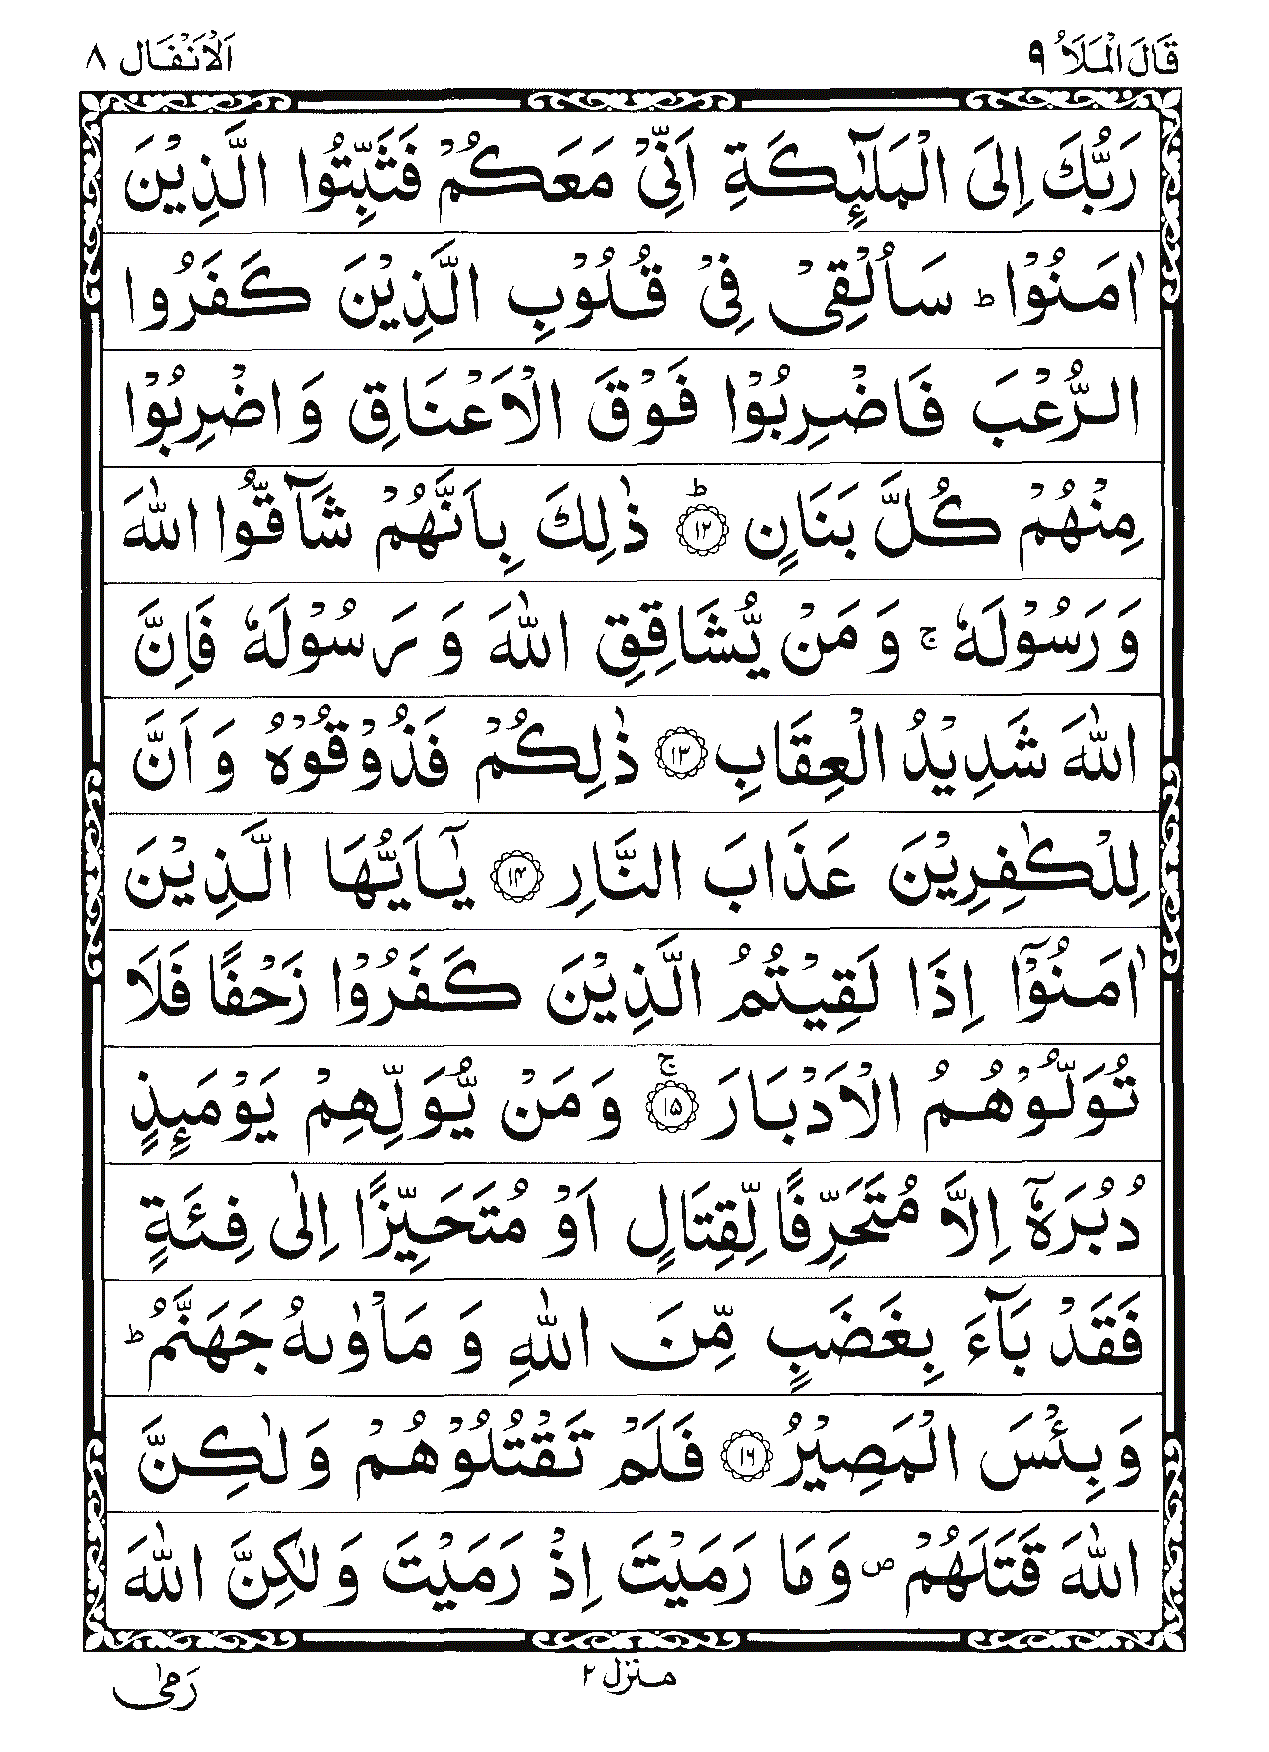 قَالَ الْمَلَاُ ٩
اَلْاَنْفَال ٨
رَبُّكَ اِلَى الْمَلٰٓئِكَةِ اَنِّيْ مَعَكُمْ فَثَبِّتُوا الَّذِيْنَ
اٰمَنُوْا ؕ سَاُلْقِيْ فِيْ قُلُوْبِ الَّذِيْنَ كَفَرُوا
الرُّعْبَ فَاضْرِبُوْا فَوْقَ الْاَعْنَاقِ وَاضْرِبُوْا
مِنْهُمْ كُلَّ بَنَانٍ ؕ ﴿۱۲﴾ ذٰلِكَ بِاَنَّهُمْ شَآقُّوا اللّٰهَ
وَرَسُوْلَهٗ ۚ وَمَنْ يُّشَاقِقِ اللّٰهَ وَرَسُوْلَهٗ فَاِنَّ
اللّٰهَ شَدِيْدُ الْعِقَابِ ﴿۱۳﴾ ذٰلِكُمْ فَذُوْقُوْهُ وَاَنَّ
لِلْكٰفِرِيْنَ عَذَابَ النَّارِ ﴿۱۴﴾ يٰۤاَيُّهَا الَّذِيْنَ
اٰمَنُوْۤا اِذَا لَقِيْتُمُ الَّذِيْنَ كَفَرُوْا زَحْفًا فَلَا
تُوَلُّوْهُمُ الْاَدْبَارَ ۚ ﴿۱۵﴾ وَمَنْ يُّوَلِّهِمْ يَوْمَئِذٍ
دُبُرَهٗۤ اِلَّا مُتَحَرِّفًا لِّقِتَالٍ اَوْ مُتَحَيِّزًا اِلٰى فِئَةٍ
فَقَدْ بَآءَ بِغَضَبٍ مِّنَ اللّٰهِ وَمَاْوٰىهُ جَهَنَّمُ ؕ
وَبِئْسَ الْمَصِيْرُ ﴿۱۶﴾ فَلَمْ تَقْتُلُوْهُمْ وَلٰكِنَّ
اللّٰهَ قَتَلَهُمْ ۪ وَمَا رَمَيْتَ اِذْ رَمَيْتَ وَلٰكِنَّ اللّٰهَ
منزل ۲
رَمٰى